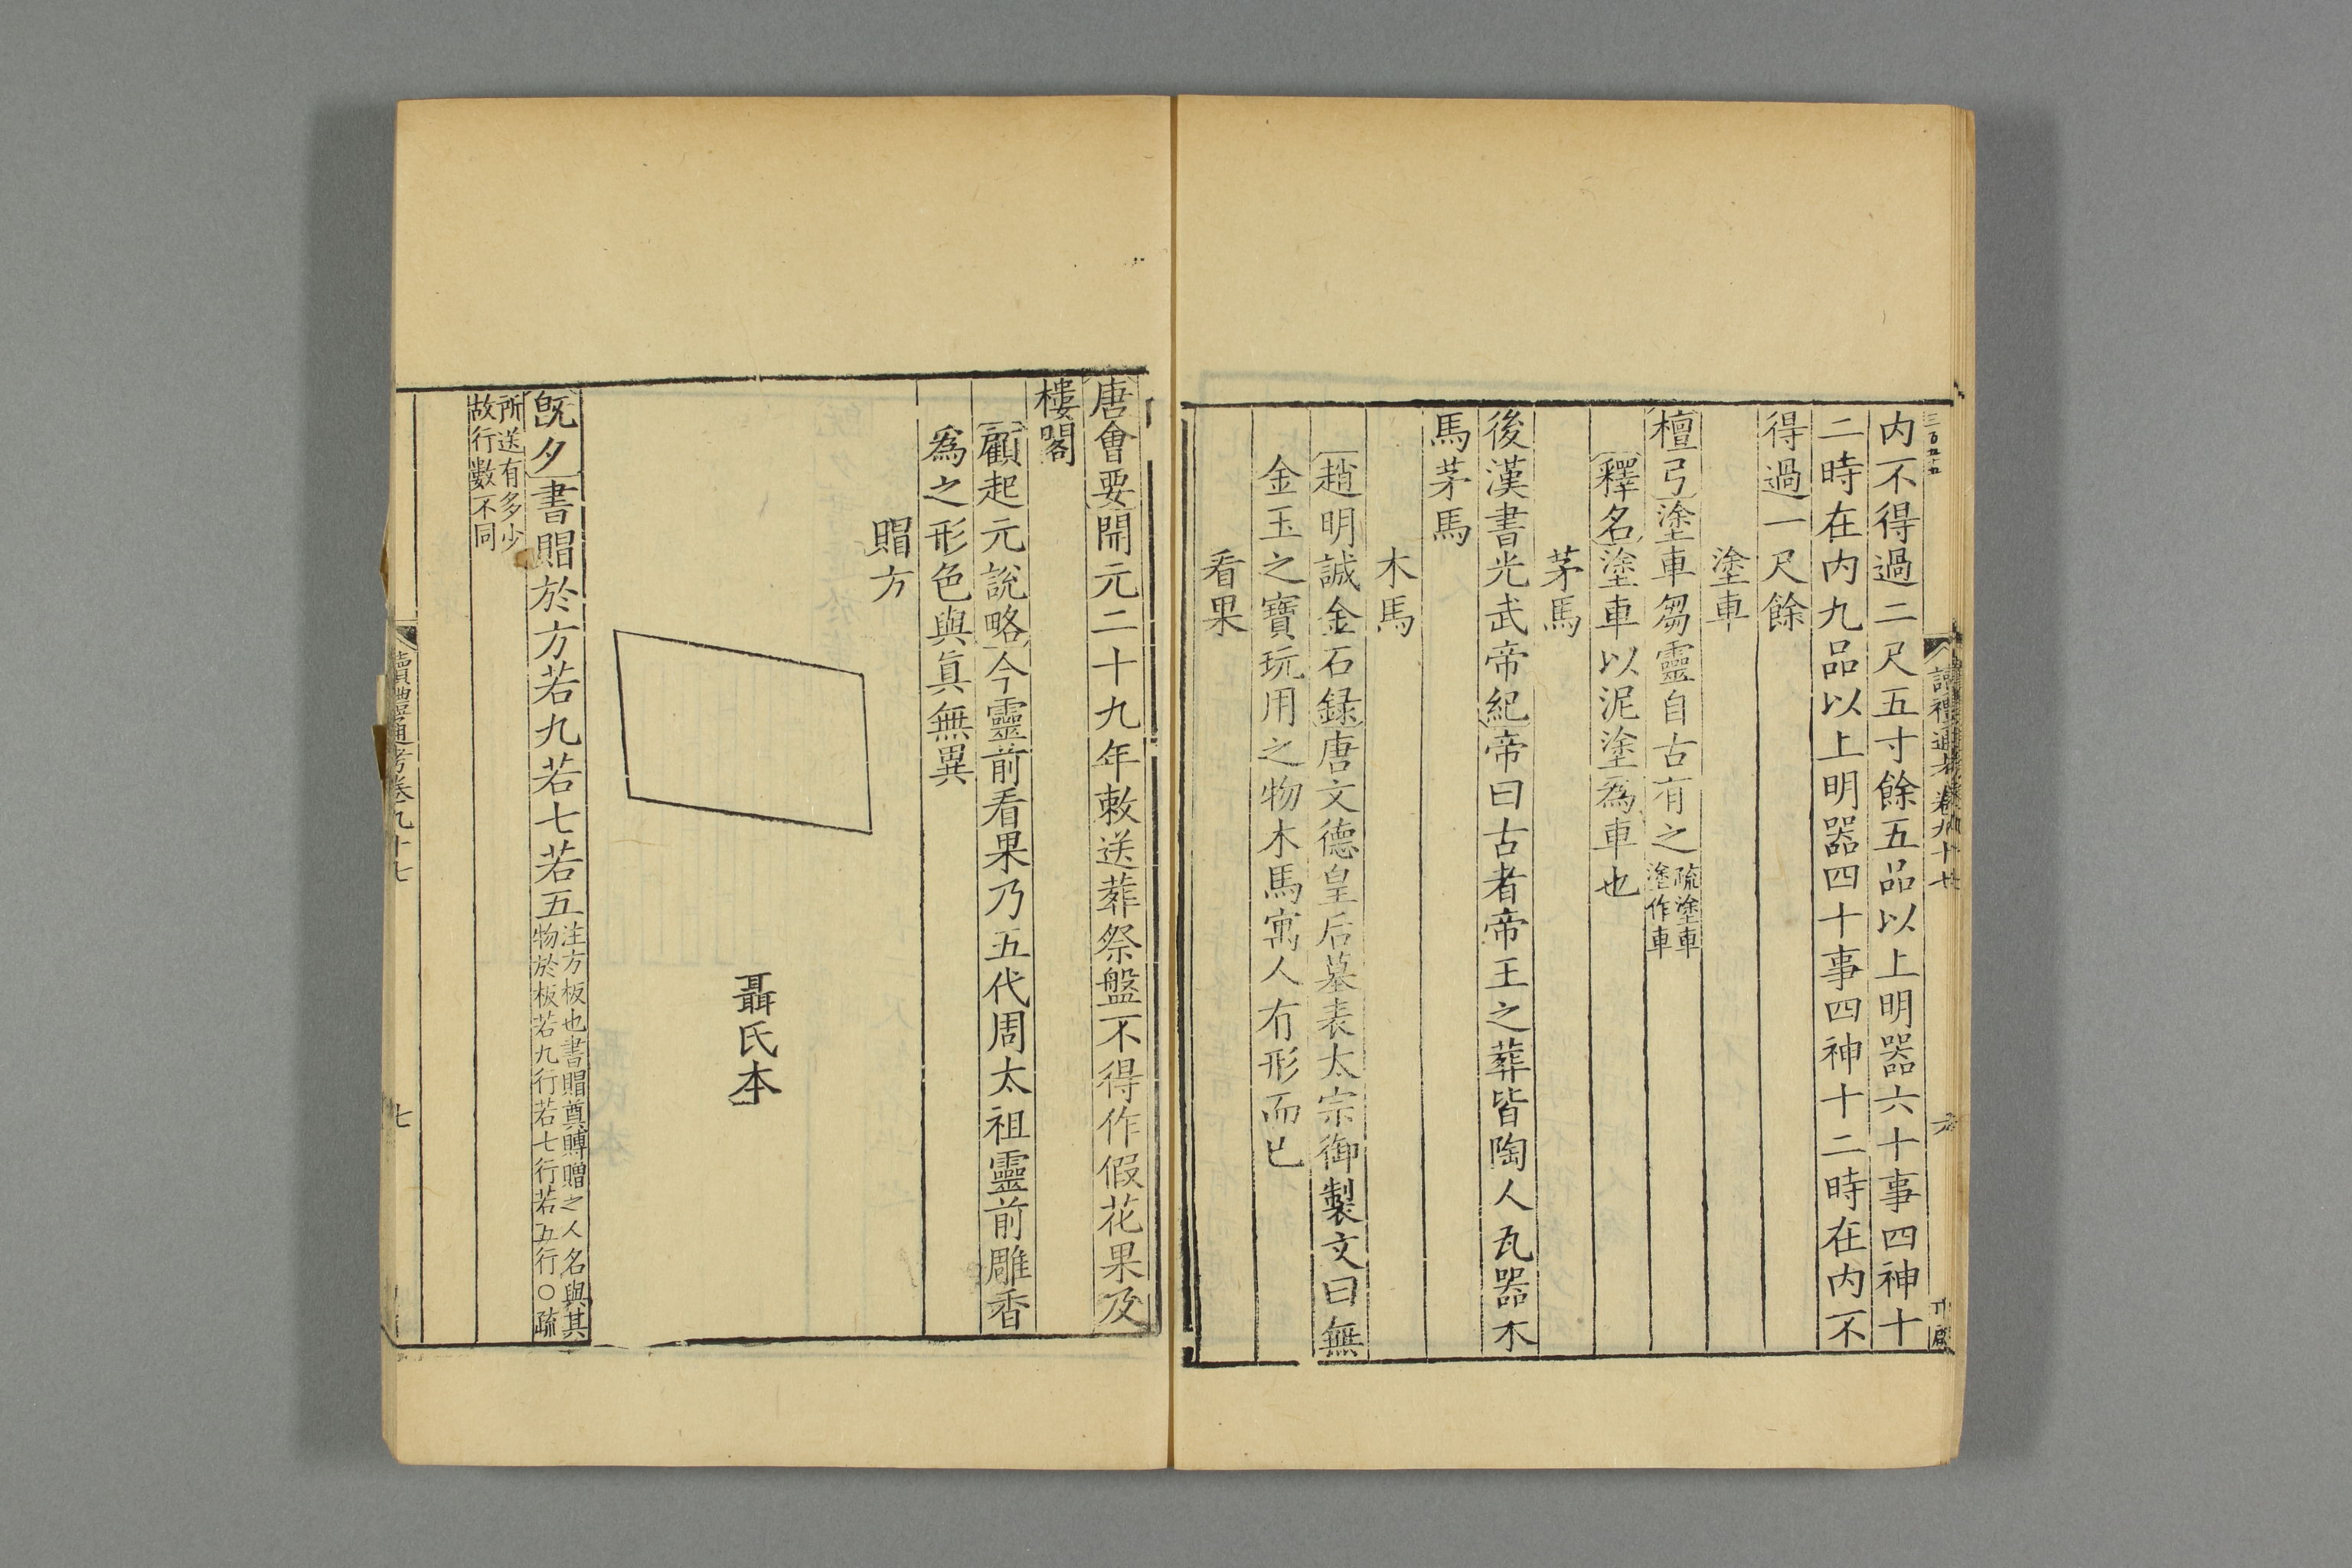 三百五十五
讀禮通考卷九十七
内不得過二尺五寸餘五品以上明器六十事四神十
二時在内九品以上明器四十事四神十二時在内不
得過一尺餘
塗車
檀弓塗車芻靈自古有之疏塗車
塗作車
釋名塗車以泥塗為車也
茅馬
後漢書光武帝紀帝曰古者帝王之葬皆陶人瓦器木
馬茅馬
木馬
趙明誠金石録唐文德皇后墓表太宗御製文曰無
金玉之寶玩用之物木馬寓人有形而已
看果
唐會要開元二十九年敕送葬祭盤不得作假花果及
樓閣
顧起元說略今靈前看果乃五代周太祖靈前雕香
爲之形色與真無異
賵方
聶氏本
旣夕書賵於方若九若七若五注方板也書賵奠賻贈之人名與其
物於板若九行若七行若五行○疏
所送有多少
故行數不同
讀禮通考卷九十七
七